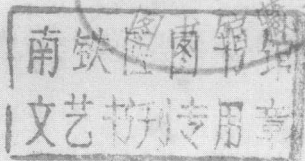 南铁医图书馆
文艺书刊专用章